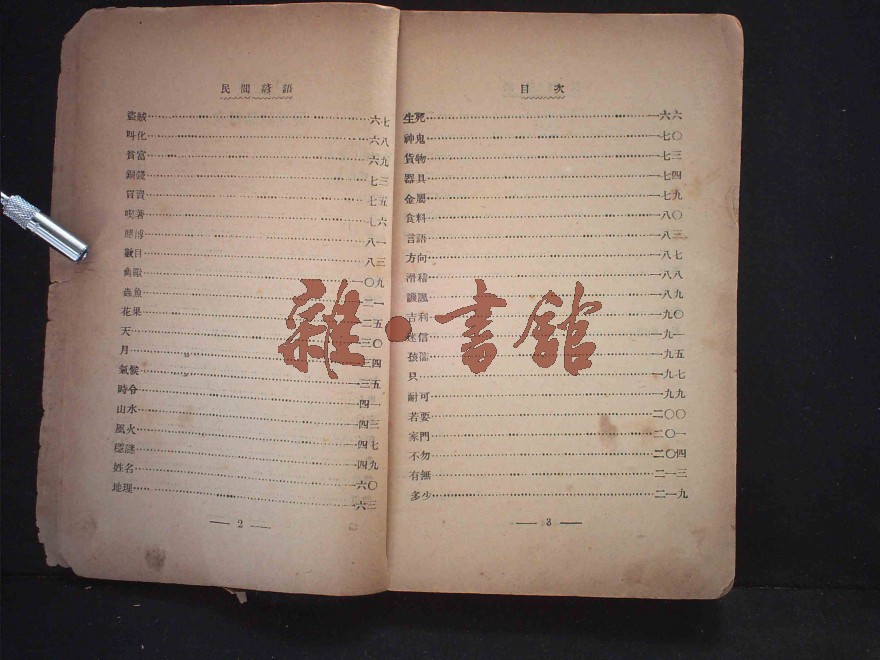 民間諺語
盜賊 六七
叫化 六八
貧富 六九
銅錢 七三
買賣 七五
喫著 七六
賭博 八一
數目 八三
鳥獸 一〇九
蟲魚 一二一
花果 一二五
天 一三〇
月 〃 一三四
氣候 〃 一三五
時令 一四一
山水 一四三
風火 一四七
隱謎 一四九
姓名 一六〇
地理 一六三
2
目次
生死 一六六
神鬼 一七〇
貨物 一七三
器具 一七四
金屬 一七九
食料 一八〇
言語 一八三
方向 一八七
滑稽 一八八
譏諷 一八九
吉利 一九〇
迷信 一九一
一九五
只 一九七
耐可 一九九
若要 二〇〇
家門 二〇一
不勿 二〇四
有無 二一三
多少 二一九
3
雜·書館